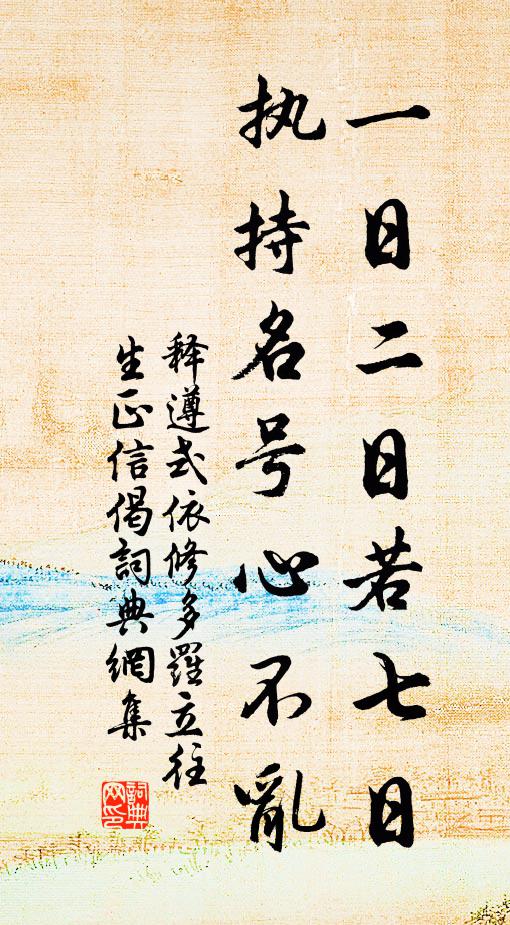 一日二日若七日
执持名号心不亂
释遵式依修多羅立往
生正信偈詞典網集
詞典
网印